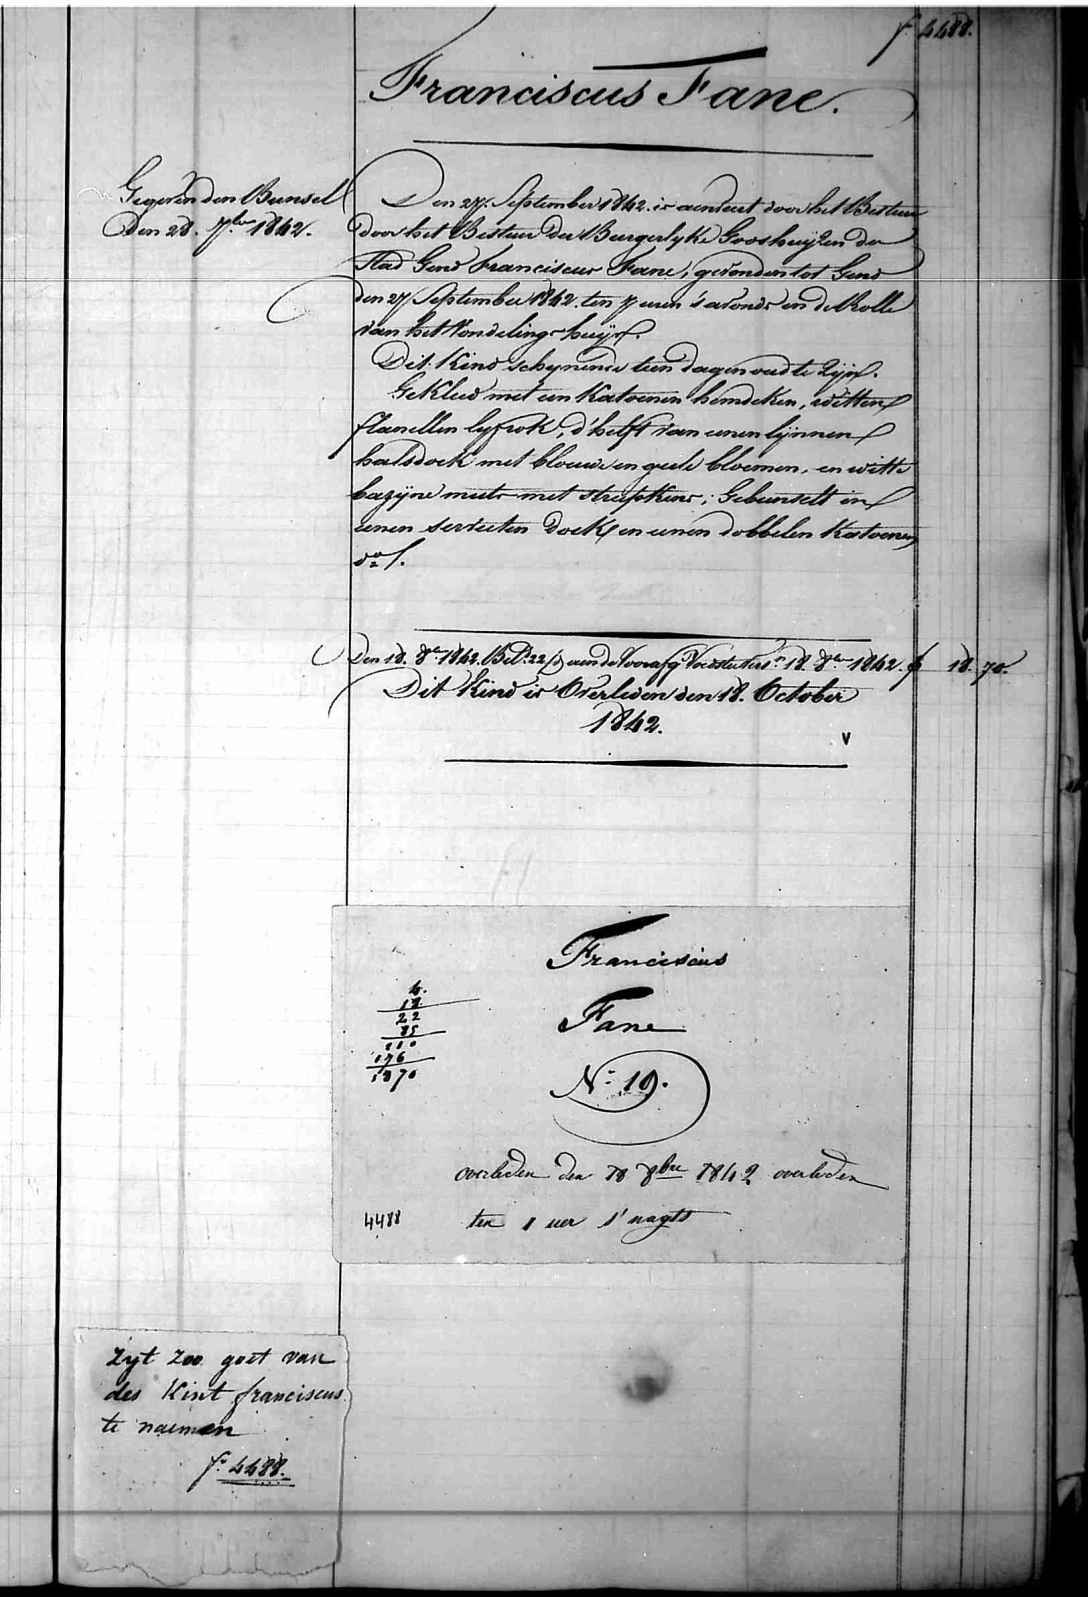 f. 4488.
Franciscus Fane.
Gegeven den Bunsel
Den 28. 7.bre 1842.
Den 27. September 1842. is aenveert door het Bestuur
door het Bestuur der Burgerlyke Godshuijzen der
Stad Gend Franciscus Fane, gevonden tot Gend
den 27 September 1842. ten 7 uren 's avonds in de Rolle
van het Vondelings huijs.
Dit Kind schynende tien dagen oud te zijn.
Gekleed met een Katoenen hemdeken, witten
flanellen lyfrok, d'helft van eenen lijnnen
halsdoek met blouwe en geele bloemen, en witte
bazyne muts met streepkens; Gebunselt in
eenen servieten doek, en eenen dobbelen Katoenen
do.
Den 18. 8.re 1842. Bet.d 22 aen de 18. 8.re 1842. f 18. 70.
Dit Kind is Overleden den 18. October
1842.
v
Franciscus
Fane
N.o 19.
6.
18
22
85
110
176
1870
overleden den 18 8bre 1842 overleden
ten 1 uer s' nagts
4488
zyt zoo goet van
des Kint franciscus
te naemen
f.o 4488.